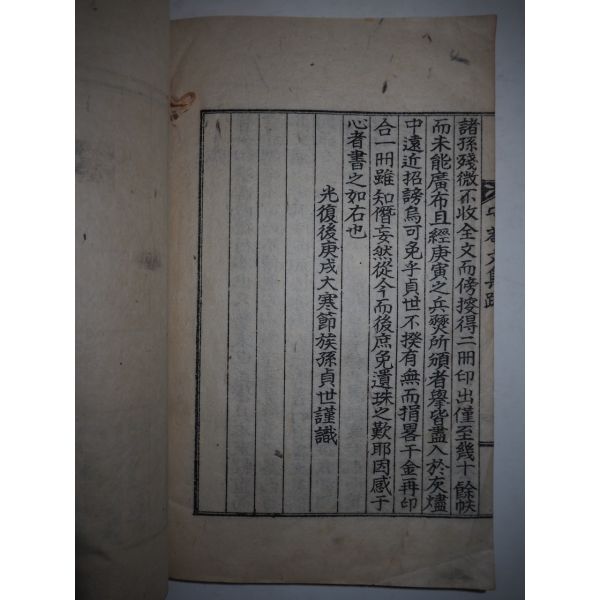 諸孫殘微不收全文而傍搜得二冊印出僅至幾十餘帙
而未能廣布且經庚寅之兵燹所頒者擧皆盡入於灰燼
中遠近招謗烏可免乎貞世不揆有無而捐畧干金再印
合一冊雖知僭妄然從今而後庶免遺珠之歎耶因感于
心者書之如右也
光復後庚戌大寒節族孫貞世謹識